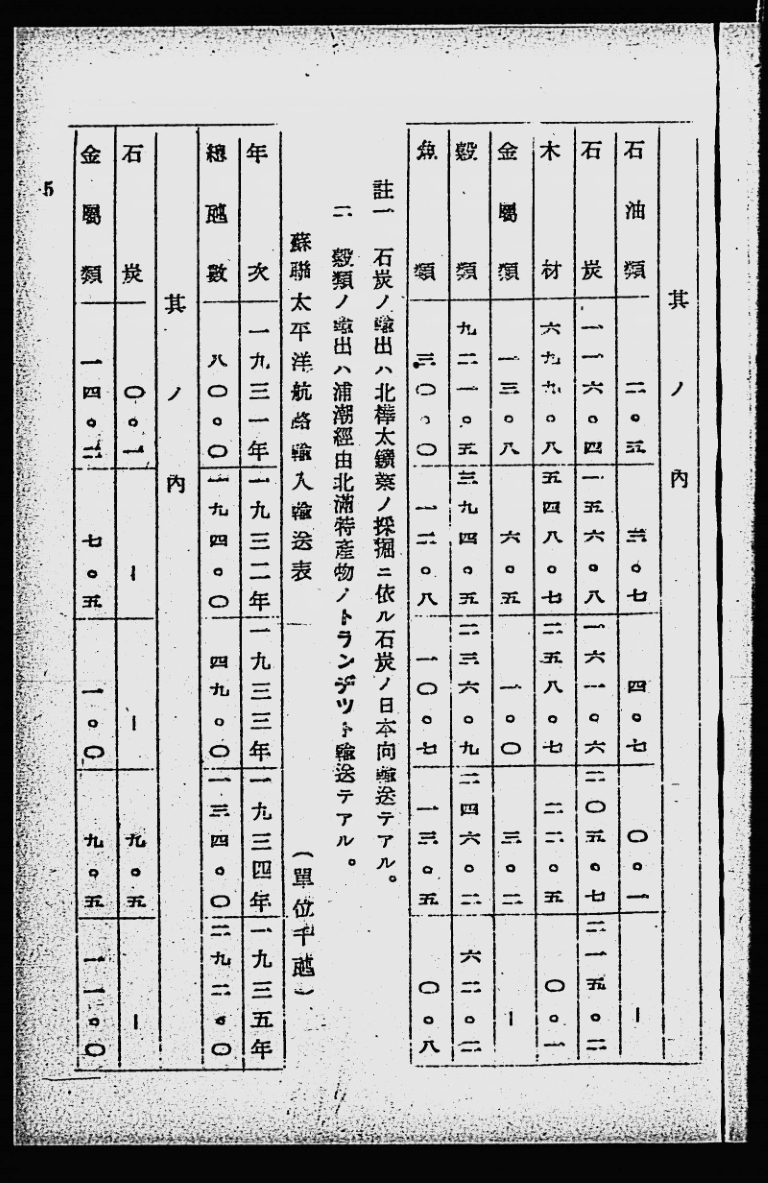 其ノ內
石油類 二。五 三。七 四。七 〇。一 ー
石炭 一一六。四 一五六。八 一六一。六 二〇五。七 二一五。二
木材 六九九。八 五四八。七 二五八。七 二二。五 〇。一
金屬類 一三。八 六。五 一。〇 三。二 ー
穀類 九二一。五 三九四。五 二三六。九 二四六。二 六二。二
魚類 三〇。〇 一二。八 一〇。七 一三。五 〇。八
註一 石炭ノ輸出ハ北樺太鑛業ノ採掘ニ依ル石炭ノ日本向輸送テアル。
二 穀類ノ輸出ハ浦潮經由北滿特產物ノトランヂツト輸送テアル。
蘇聯太平洋航路輸入輸送表 (單位千瓲)
年次 一九三一年 一九三二年 一九三三年 一九三四年 一九三五年
總瓲數 八〇。〇 一九四。〇 四九。〇 一三四。〇 二九二。〇
其ノ內
石炭 〇。一 ー ー 九。五 ー
金屬類 一四。二 七。五 一。〇 九。五 一一。〇
5